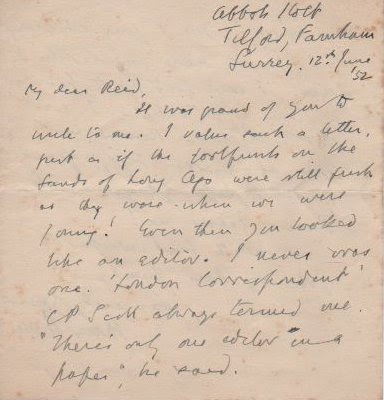 Abbots Holt
Tilford, Farnham
Surrey. 12th June
'52
My dear Reid,
It was grand of you to
write to me. I value such a letter,
just as if the footprints on the
Sands of Long Ago were still fresh
as they were when we were
young! Even then you looked
like an editor. I never was
one. 'London Correspondent'
CP Scott always termed one.
"There's only one editor in a
paper", he said.